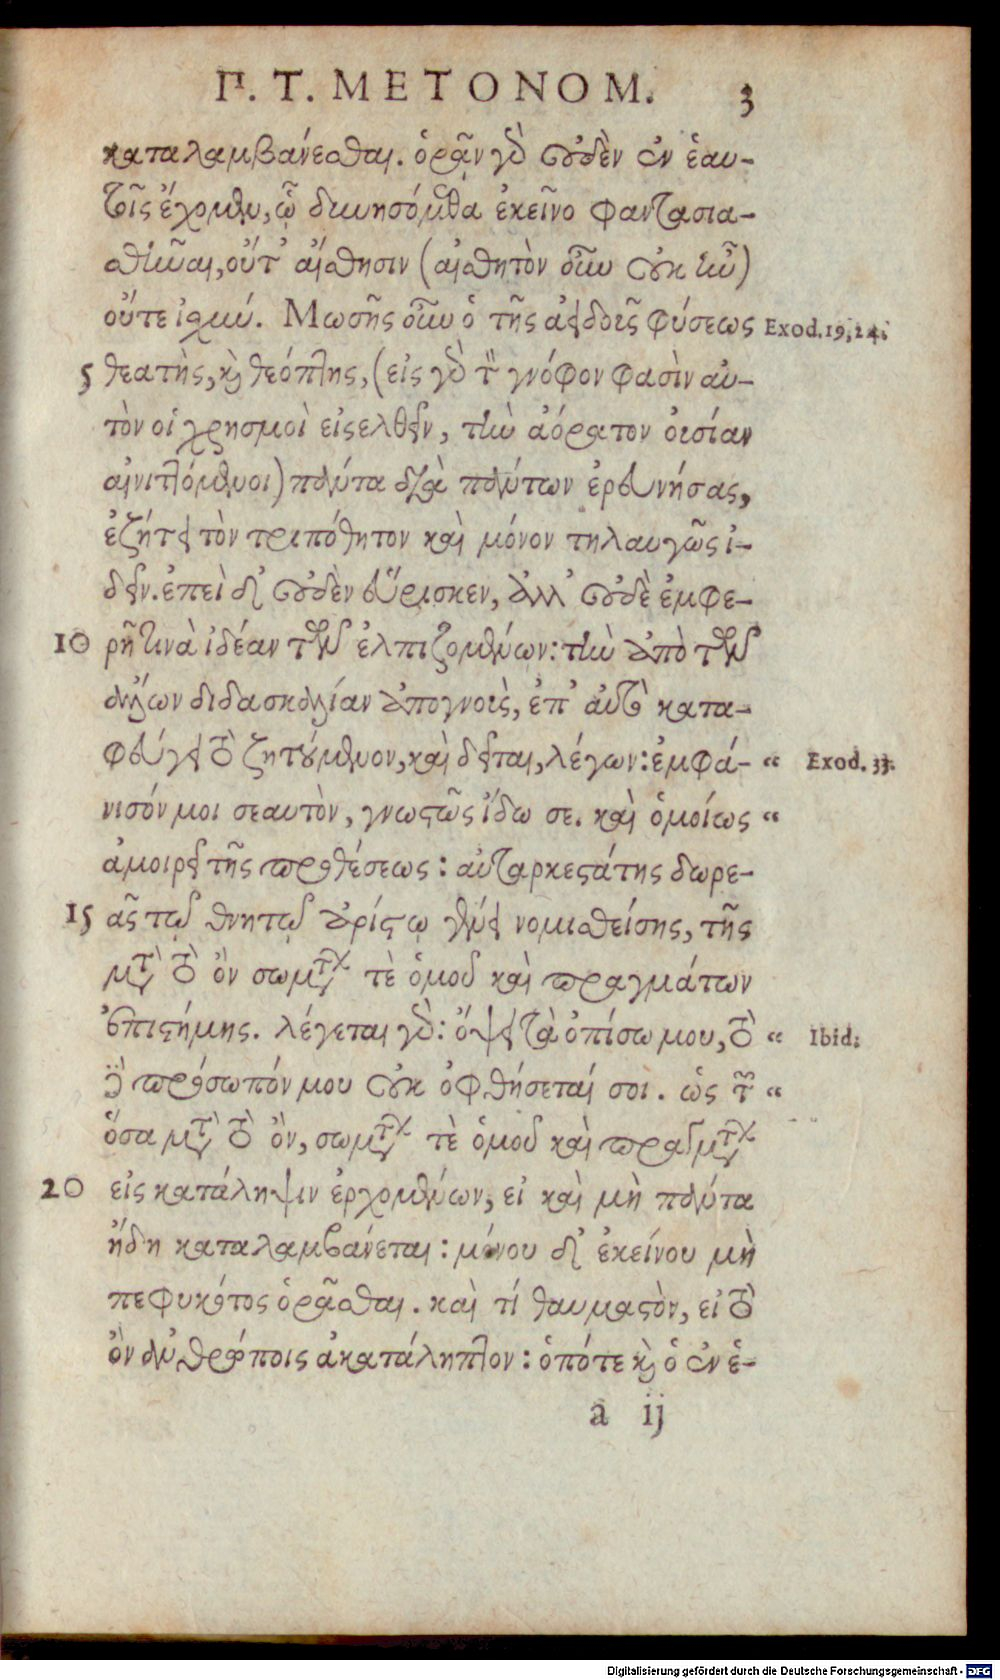 Π. Τ. ΜΕΤΟΝΟΜ. 3
καταλαμβάνεσθαι. ὁρᾷν γὸ οὐδὲν ἐν ἑαυ-
τοῖς ἔχομεν, ᾧ δυνησόμεθα ἐκεῖνο φαντασια-
σθῆναι, οὔτ' αἴσθησιν (αἰσθητὸν οὖν οὐκ ἦν)
οὔτε ἰσχύν. Μωσῆς οὖν ὁ τῆς ἀειδοῖς φύσεως Exod. 19, 24.
5 θεατὴς, καὶ θεόπτης, (εἰς γὸ τὸν γνόφον φασὶν αὐ-
τὸν οἱ χρησμοὶ εἰςελθεῖν, τὴν ἀόρατον οὐσίαν
αἰνιττόμενοι) πάντα διὰ πάντων ἐρευνήσας,
ἐζήτει τὸν τριπόθητον καὶ μόνον τηλαυγῶς ἰ-
δεῖν. ἐπεὶ δ' οὐδὲν εὕρισκεν, ἀλλ' οὐδὲ ἐμφε-
10 ρῆ τινὰ ἰδέαν τῶν ἐλπιζομένων: τὴν ἀπὸ τῶν
ἄλλων διδασκαλίαν ἀπογνοὺς, ἐπ' αὐτὸ κατα-
φεύγει τὸ ζητούμενον, καὶ δεῖται, λέγων: ἐμφά- “ Exod. 33.
νισόν μοι σεαυτὸν, γνωστῶς ἴδω σε. καὶ ὁμοίως “
ἀμοιρεῖ τῆς προθέσεως: αὐταρκεστάτης δωρε-
15 ᾶς τῷ θνητῷ ἀρίστῳ γένει νομισθείσης, τῆς
μετὰ τὸ ὂν σωμάτων τὲ ὁμοῦ καὶ πραγμάτων
ἐπιστήμης. λέγεται γὸ: ὄψει τὰ ὀπίσω μου, τὸ “ Ibid.
δὲ πρόσωπόν μου οὐκ ὀφθήσεταί σοι. ὡς τῶν “
ὅσα μετὰ τὸ ὂν, σωμάτων τὲ ὁμοῦ καὶ πραγμάτων
20 εἰς κατάληψιν ἐρχομένων, εἰ καὶ μὴ πάντα
ἤδη καταλαμβάνεται: μόνου δ' ἐκείνου μὴ
πεφυκότος ὁρᾶσθαι. καὶ τί θαυμαστὸν, εἰ τὸ
ὂν ἀνθρώποις ἀκατάληπτον: ὁπότε καὶ ὁ ἐν ἑ-
a ij
Digitalisierung gefördert durch die Deutsche Forschungsgemeinschaft - DFG